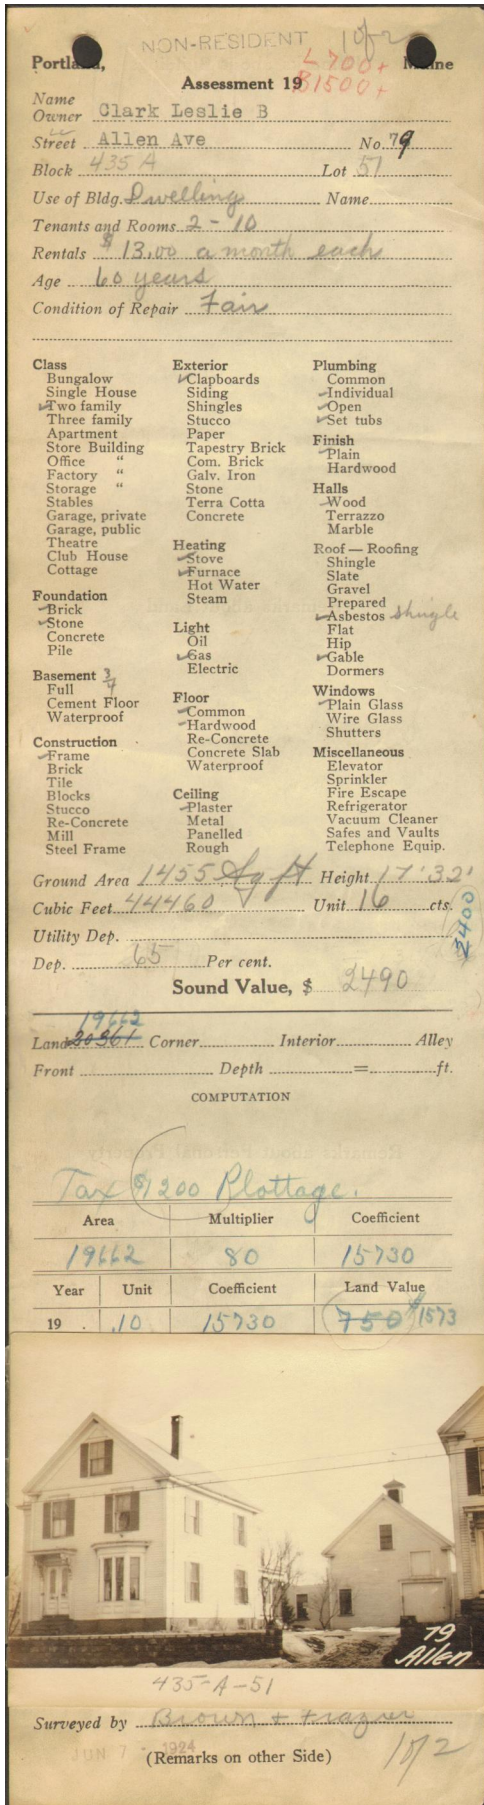 NON-RESIDENT 1 of 2
Portland, Maine
L 700+
B 1500+
Assessment 19
Name
Owner Clark Leslie B
Street Allen Ave No. 79
Block 435 A Lot 51
Use of Bldg. Dwelling Name
Tenants and Rooms 2-10
Rentals $13.00 a month each
Age 60 years
Condition of Repair Fair
Class
Bungalow
Single House
✓Two family
Three family
Apartment
Store Building
Office "
Factory "
Storage "
Stables
Garage, private
Garage, public
Theatre
Club House
Cottage
Foundation
✓Brick
✓Stone
Concrete
Pile
Basement 3/4
Full
Cement Floor
Waterproof
Construction
✓Frame
Brick
Tile
Blocks
Stucco
Re-Concrete
Mill
Steel Frame
Exterior
✓Clapboards
Siding
Shingles
Stucco
Paper
Tapestry Brick
Com. Brick
Galv. Iron
Stone
Terra Cotta
Concrete
Heating
✓Stove
✓Furnace
Hot Water
Steam
Light
Oil
✓Gas
Electric
Floor
✓Common
✓Hardwood
Re-Concrete
Concrete Slab
Waterproof
Ceiling
✓Plaster
Metal
Panelled
Rough
Plumbing
Common
✓Individual
✓Open
✓Set tubs
Finish
✓Plain
Hardwood
Halls
✓Wood
Terrazzo
Marble
Roof — Roofing
Shingle
Slate
Gravel
Prepared
✓Asbestos shingle
Flat
Hip
✓Gable
Dormers
Windows
✓Plain Glass
Wire Glass
Shutters
Miscellaneous
Elevator
Sprinkler
Fire Escape
Refrigerator
Vacuum Cleaner
Safes and Vaults
Telephone Equip.
Ground Area 1455 Sq ft Height 17'32'
Cubic Feet 44460 Unit 16 cts.
Utility Dep. 2400
Dep. 65 Per cent.
Sound Value, $ 2490
19662
Land 20361 Corner Interior Alley
Front Depth = ft.
COMPUTATION
Tax $1200 Plottage.
Area Multiplier Coefficient
19662 80 15730
Year Unit Coefficient Land Value
19 . .10 15730 750 $1573
79
Allen
435-A-51
Surveyed by Brown + Frazier
JUN 7 - 1924
(Remarks on other Side) 1 of 2